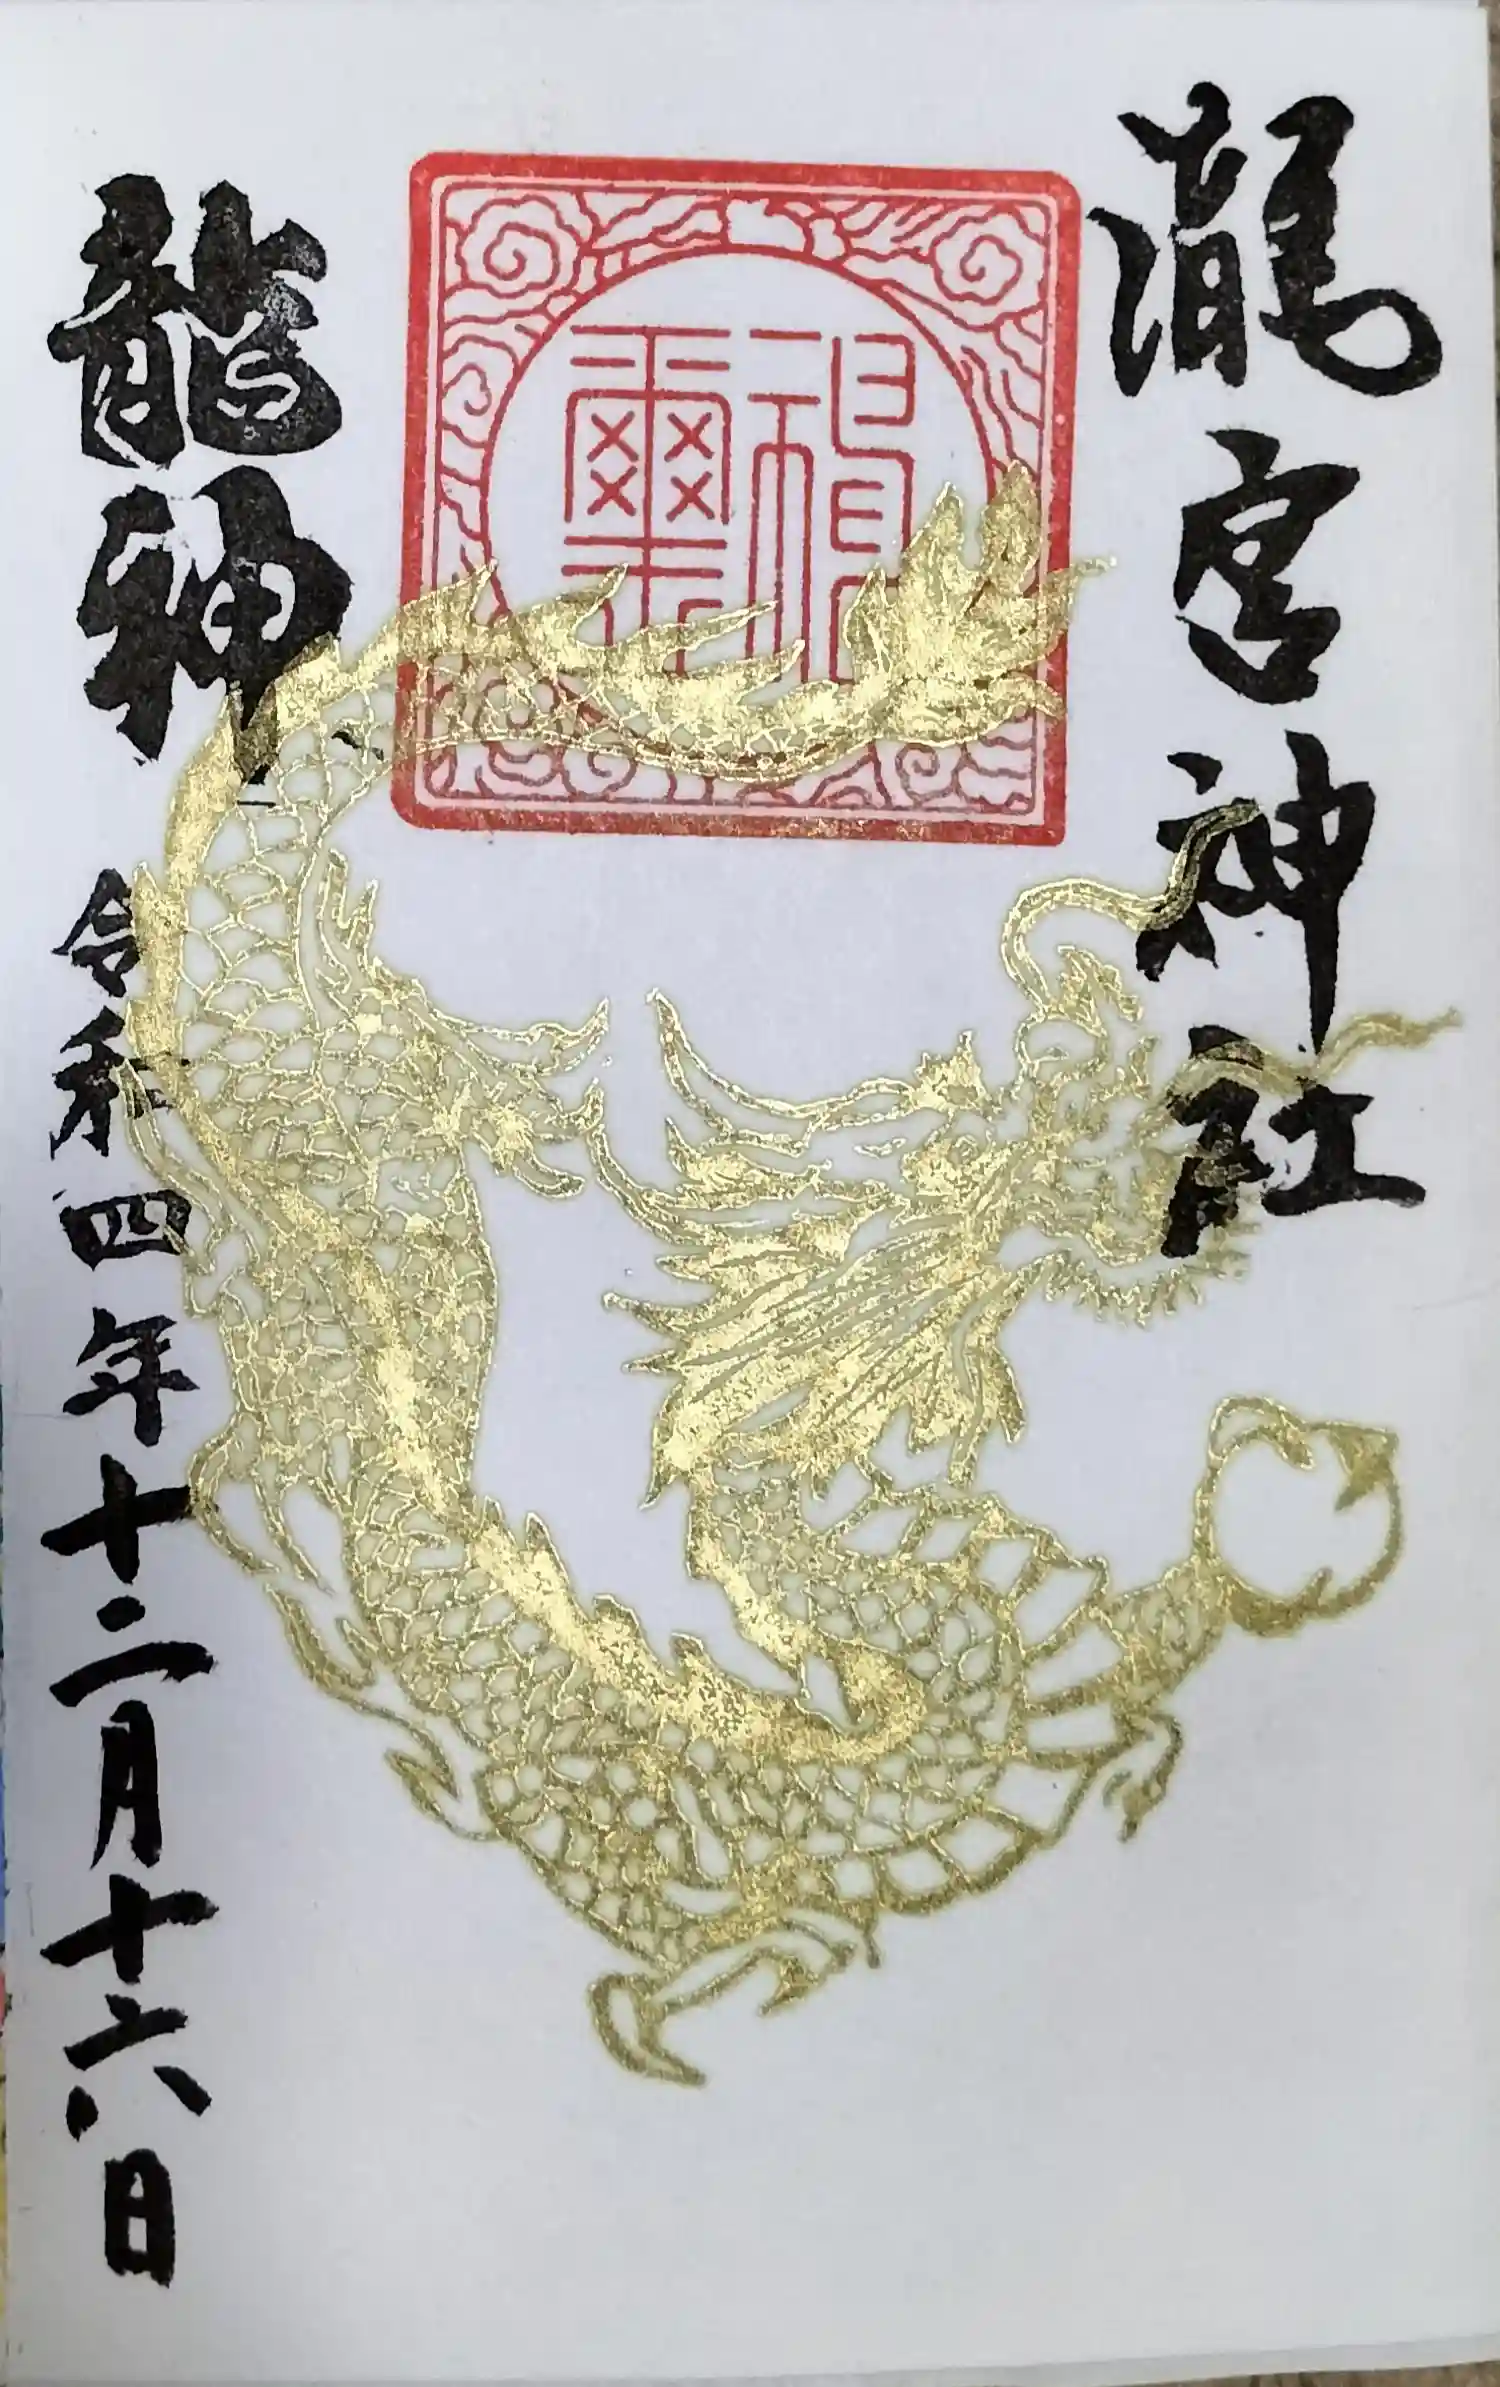 瀧宮神社
龍神
令和四年十二月十六日